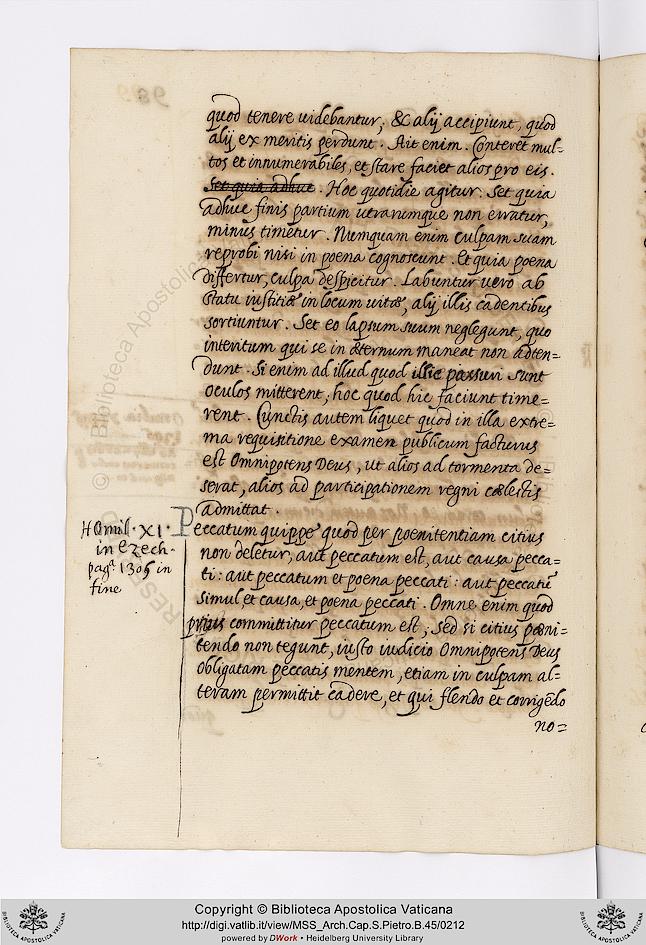 quod tenere uidebantur, & alij accipiunt, quod
alij ex meritis perdunt. Ait enim. Conteret mul=
tos et innumerabiles, et stare faciet alios pro eis.
Set quia adhuc. Hoc quotidie agitur. Set quia
adhuc finis partium utrarumque non erratur,
minus timetur. Numquam enim culpam suam
reprobi nisi in poena cognoscunt. Et quia poena
differtur, culpa despicitur. Labuntur uero ab
statu iustitiæ in locum uitæ, alij illis cadentibus
sortiuntur. Set eo lapsum suum neglegunt, quo
interitum qui se in æternum maneat non adten=
dunt. Si enim ad illud quod illic passuri sunt
oculos mitterent, hoc quod hic faciunt time=
rent. Cunctis autem liquet quod in illa extre=
ma requisitione examen publicum facturus
est Omnipotens Deus, ut alios ad tormenta de=
serat, alios ad participationem regni cælestis
admittat.
Homil. XI.
in Ezech.
pagª 1305 in
fine
Peccatum quippe quod per poenitentiam citius
non deletur, aut peccatum est, aut causa pecca=
ti: aut peccatum et poena peccati: aut peccatū
simul et causa, et poena peccati. Omne enim quod
prius committitur peccatum est, Sed si citius pæni=
tendo non tegunt, iusto iudicio Omnipotens Deus
obligatam peccatis mentem, etiam in culpam al=
teram permittit cadere, et qui flendo et corrigēdo
no=
© Biblioteca Apostolica Vaticana
Copyright © Biblioteca Apostolica Vaticana
http://digi.vatlib.it/view/MSS_Arch.Cap.S.Pietro.B.45/0212
powered by DWork • Heidelberg University Library